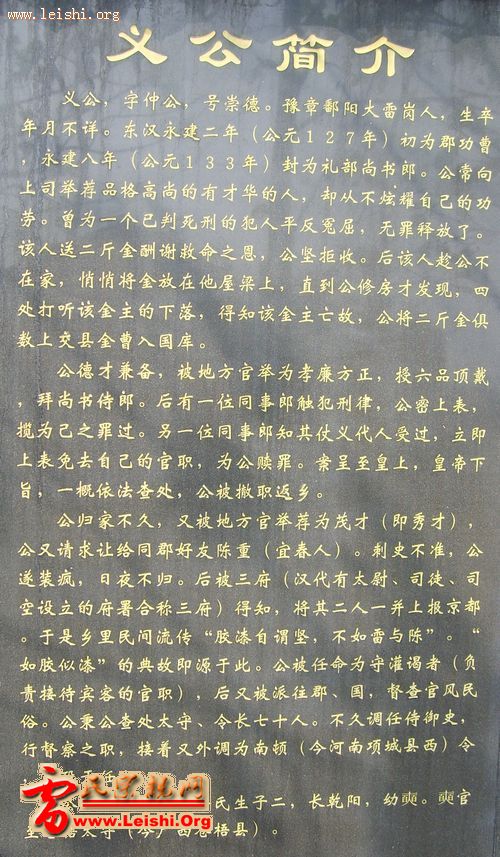 www.leishi.org
义公简介
义公，字仲公，号崇德。豫章鄱阳大雷岗人，生卒
年月不详。东汉永建二年（公元127年）初为郡功曹
，永建八年（公元133年）封为礼部尚书郎。公常向
上司举荐品格高尚的有才华的人，却从不炫耀自己的功
劳。曾为一个已判死刑的犯人平反冤屈，无罪释放了。
该人送二斤金酬谢救命之恩，公坚拒收。后该人趁公不
在家，悄悄将金放在他屋梁上，直到公修房才发现，四
处打听该金主的下落，得知该金主亡故，公将二斤金俱
数上交县金曹入国库。
公德才兼备，被地方官举为孝廉方正，授六品顶戴
，拜尚书侍郎。后有一位同事郎触犯刑律，公密上表，
揽为己之罪过。另一位同事郎知其仗义代人受过，立即
上表免去自己的官职，为公赎罪。案呈至皇上，皇帝下
旨，一概依法查处，公被撤职返乡。
公归家不久，又被地方官举荐为茂才（即秀才），
公又请求让给同郡好友陈重（宜春人）。刺史不准，公
遂装疯，日夜不归。后被三府（汉代有太尉、司徒、司
空设立的府署合称三府）得知，将其二人一并上报京都
。于是乡里民间流传“胶漆自谓坚，不如雷与陈”。“
如胶似漆”的典故即源于此。公被任命为守灌谒者（负
责接待宾客的官职），后又被派往郡、国，督查官风民
俗。公秉公查处太守、令长七十人。不久调任侍御史，
行督察之职，接着又外调为南顿（今河南项城县西）令
氏生子二，长乾阳，幼奭。奭官
太守（今广西苍梧县）。
雷氏宗亲网
www.Leishi.Org